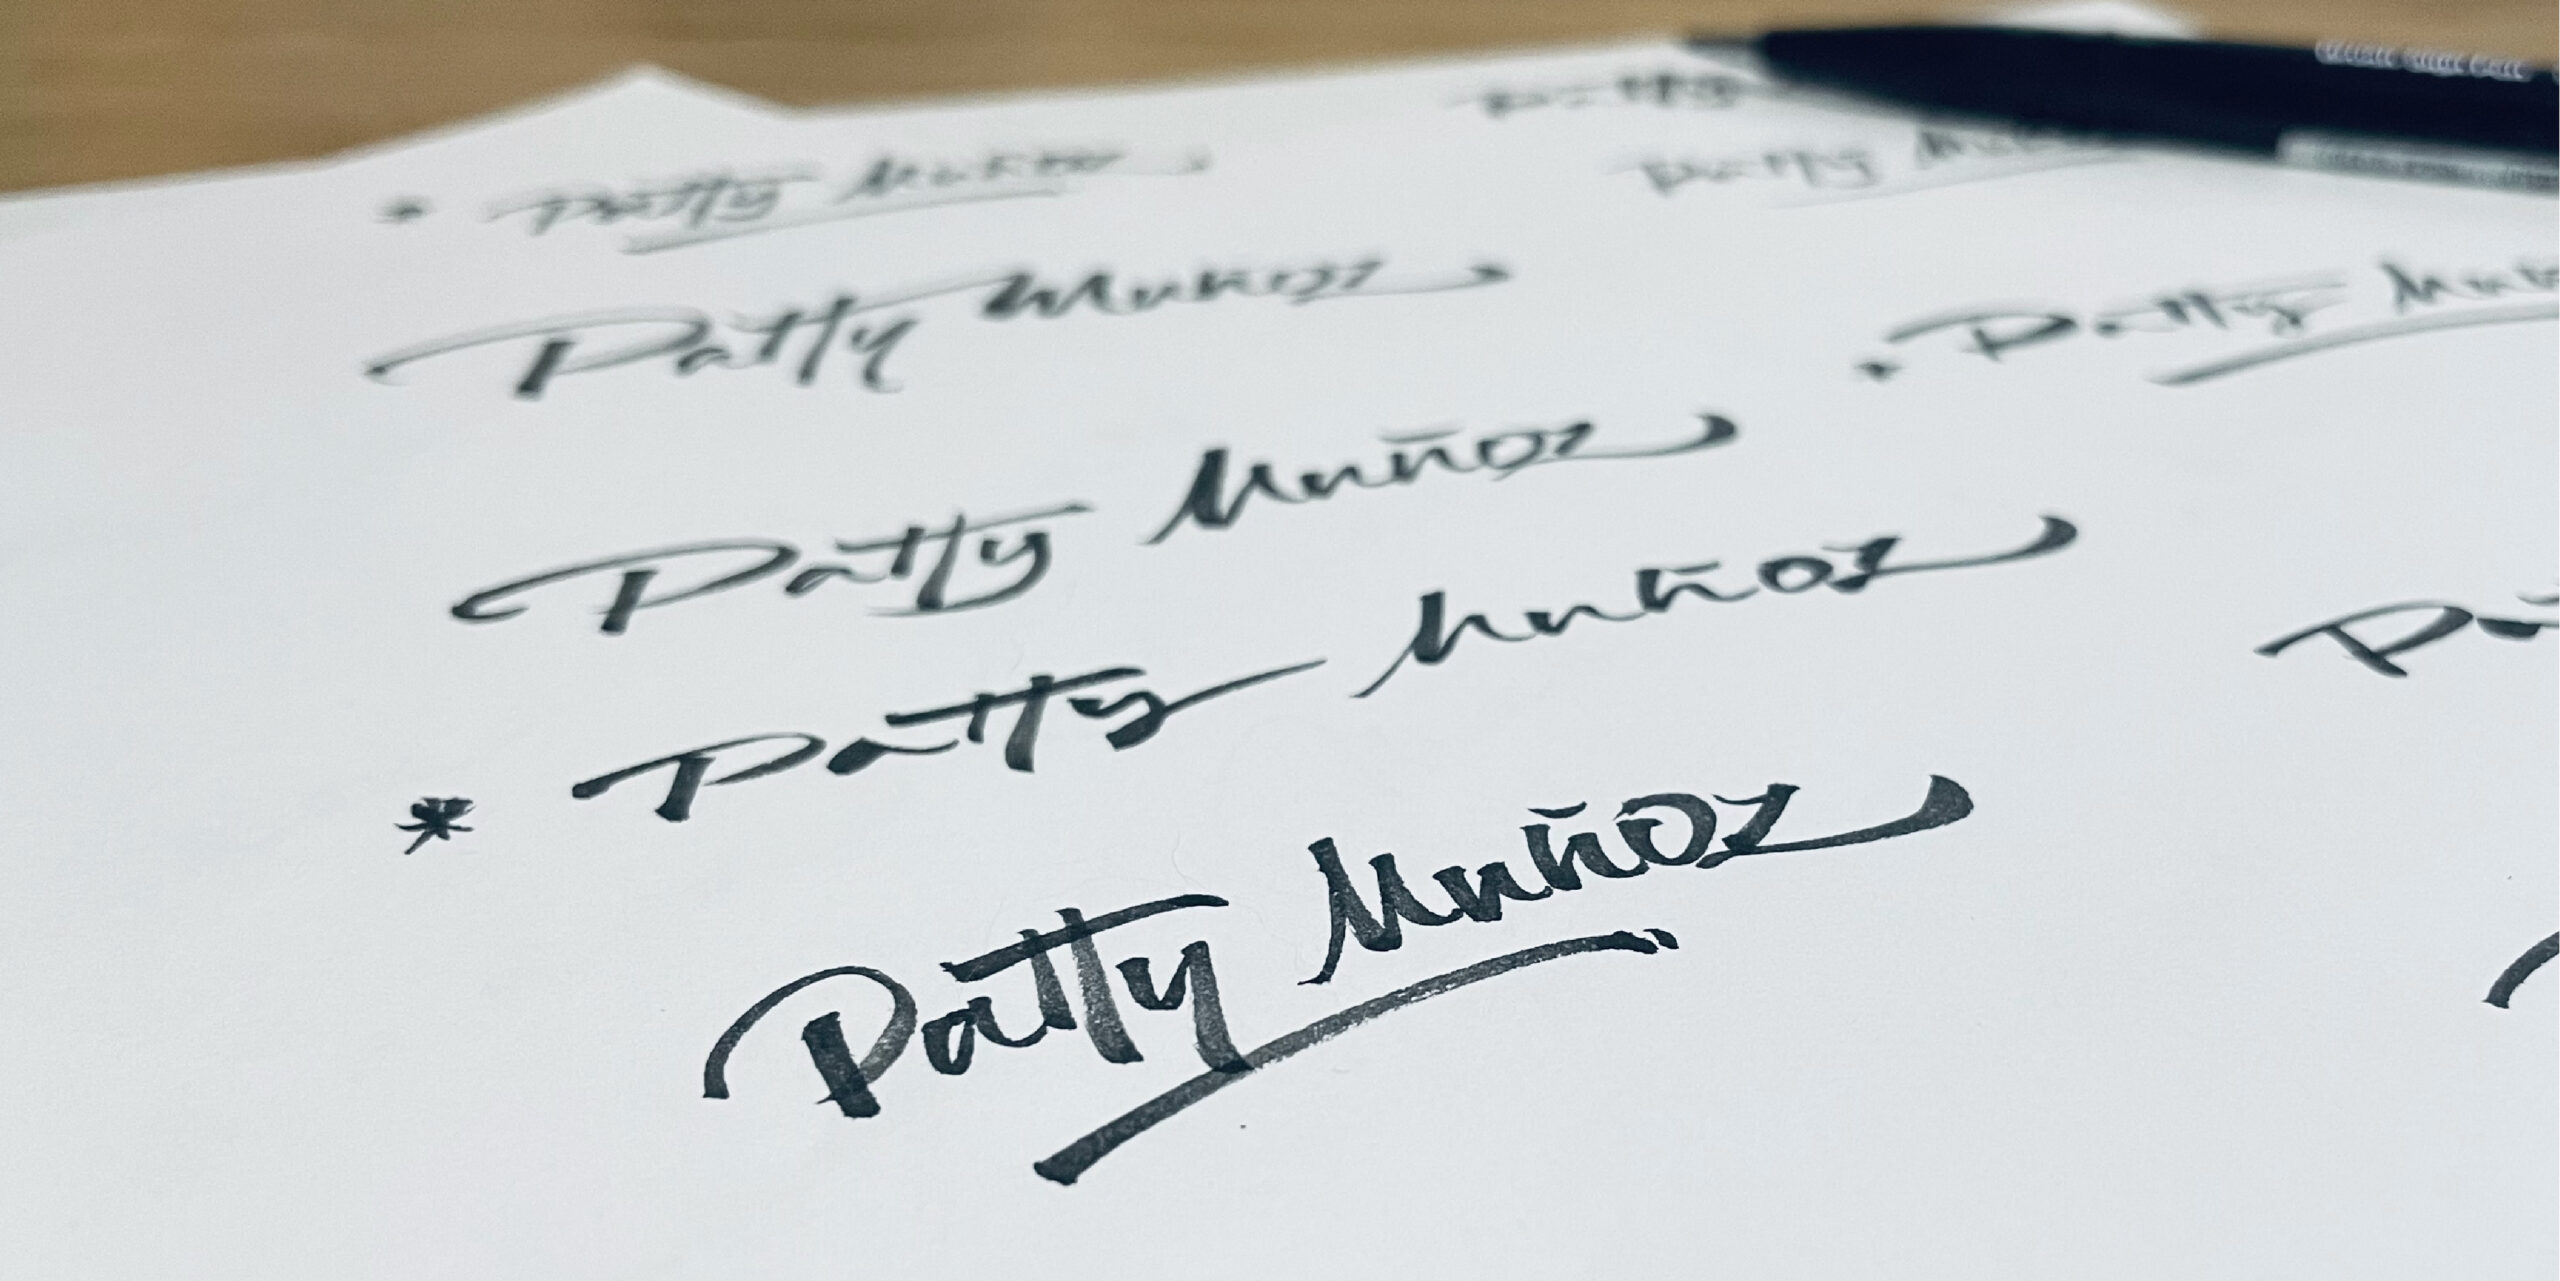 Patty
* Patty Muñoz
Patty
Patty Muñoz
Patty Muñoz
Patty Muñoz
* Patty Muñoz
Patty Muñoz